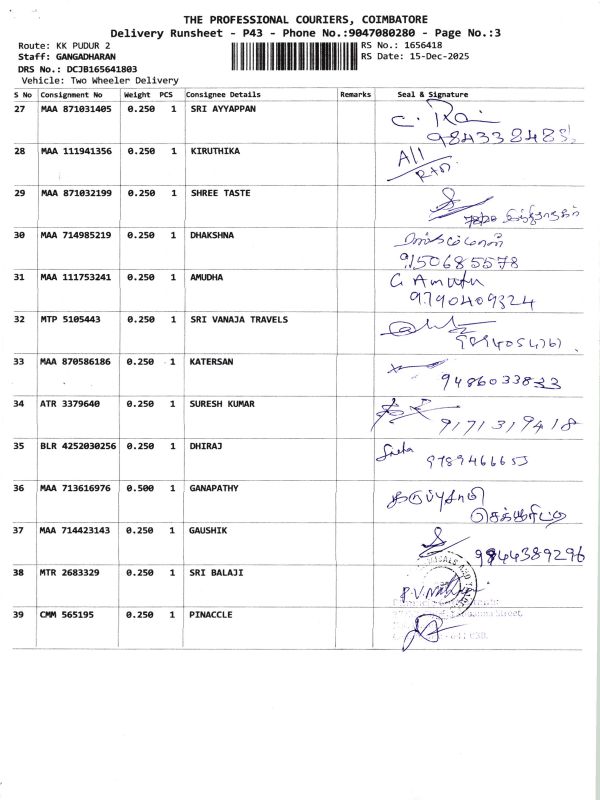 THE PROFESSIONAL COURIERS, COIMBATORE
Delivery Runsheet - P43 - Phone No.:9047080280 - Page No.:3
Route: KK PUDUR 2 RS No.: 1656418
Staff: GANGADHARAN RS Date: 15-Dec-2025
DRS No.: DCJB165641803
Vehicle: Two Wheeler Delivery
S No Consignment No Weight PCS Consignee Details Remarks Seal & Signature
27 MAA 871031405 0.250 1 SRI AYYAPPAN
28 MAA 111941356 0.250 1 KIRUTHIKA
29 MAA 871032199 0.250 1 SHREE TASTE
30 MAA 714985219 0.250 1 DHAKSHNA
9150685578
31 MAA 111753241 0.250 1 AMUDHA G Amutha
9790409324
32 MTP 5105443 0.250 1 SRI VANAJA TRAVELS
33 MAA 870586186 0.250 1 KATERSAN
9486033833
34 ATR 3379640 0.250 1 SURESH KUMAR
9171319418
35 BLR 4252030256 0.250 1 DHIRAJ
9789466653
36 MAA 713616976 0.500 1 GANAPATHY கருப்புசாமி
செக்யூரிட்டி
37 MAA 714423143 0.250 1 GAUSHIK
9944389296
38 MTR 2683329 0.250 1 SRI BALAJI
39 CMM 565195 0.250 1 PINACCLE